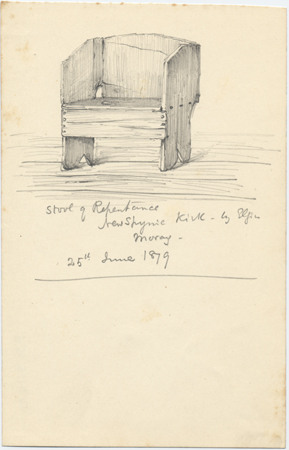 Stool of Repentance
New Spynie Kirk - by Elgin
Moray -
25th June 1879